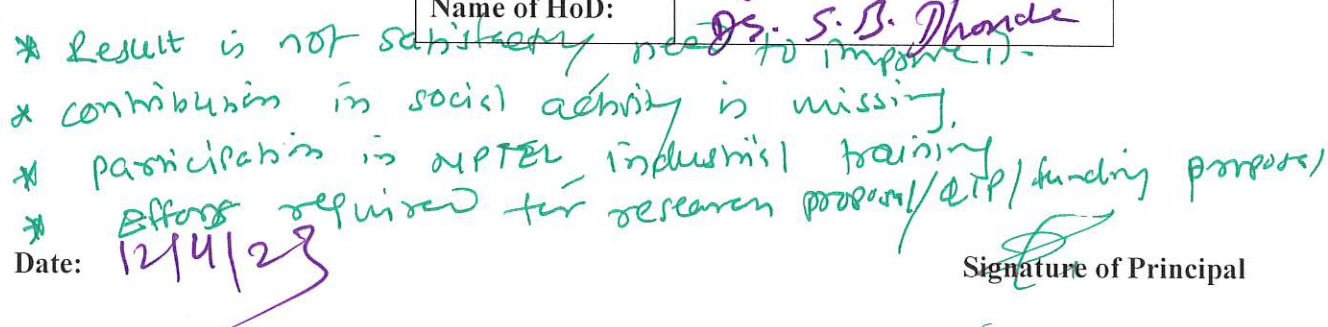 Name of HoD: Ds. S. B. Dhonde
* Result is not satisfactory need to improve it.
* contribution in social activity is missing.
* participation in NPTEL, industrial training
* Efforts required for research proposal/QIP/funding proposal
Date: 12/4/23 Signature of Principal